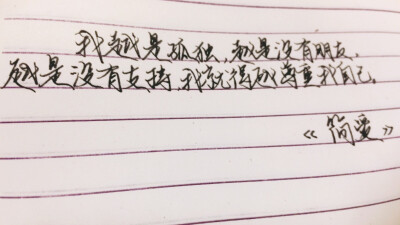 我越是孤独，越是没有朋友，
越是没有支持，我就得越尊重我自己。
《简爱》